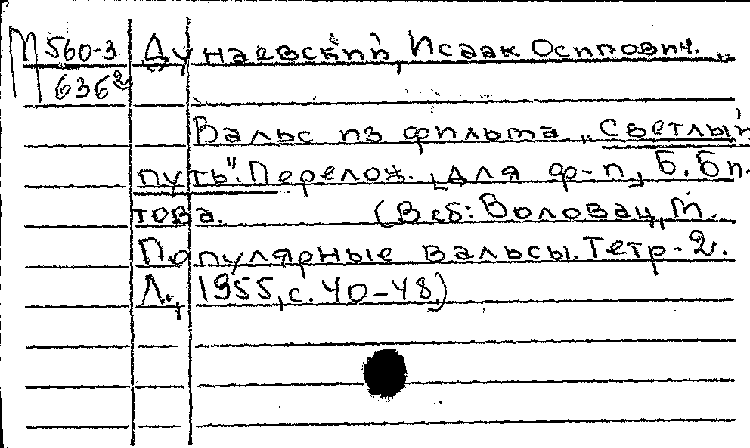 М 560-3 Дунаевский, Исаак Осипович.
636²
Вальс из фильма „Светлый
путь". Перелож. [для ф-п.] Б. Би-
това. (В сб: Воловац, М.
Популярные вальсы. Тетр. 2.
Л., 1955, с. 40-48.)